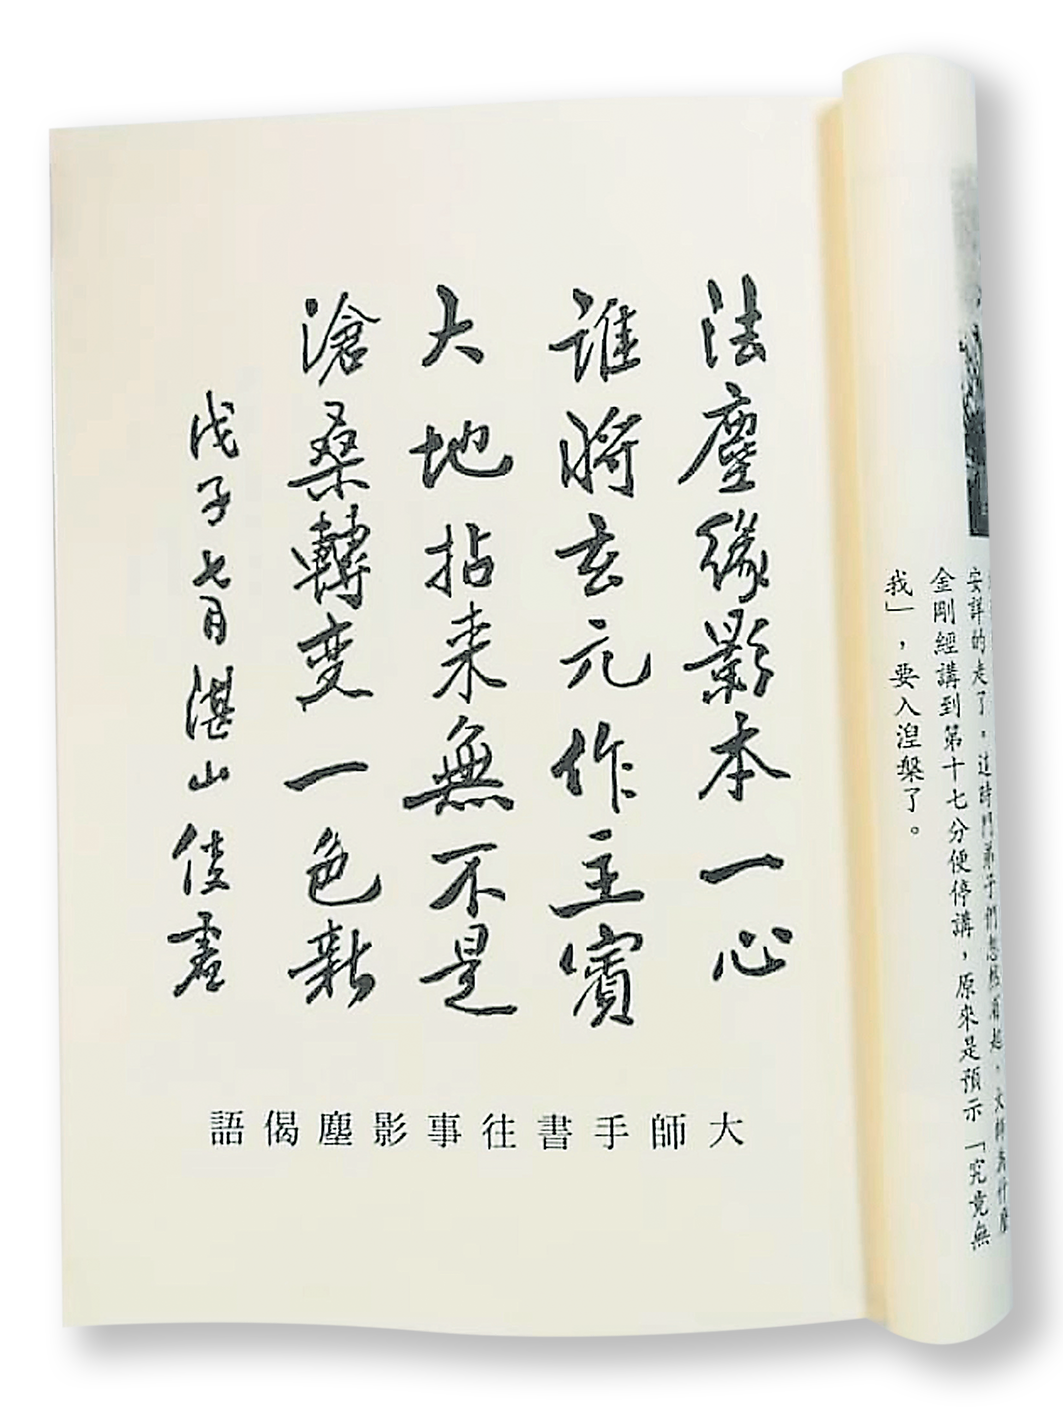 安詳的走了。這時門弟子們起，大師為什麼
金剛經講到第十七分便停講，原來是預示「究竟無
我」，要入涅槃了。
法塵緣影本一心
誰將玄元作主賓
大地拈来無不是
滄桑轉变一色新
戊子七月湛山倓虚
大師手書往事影塵偈語